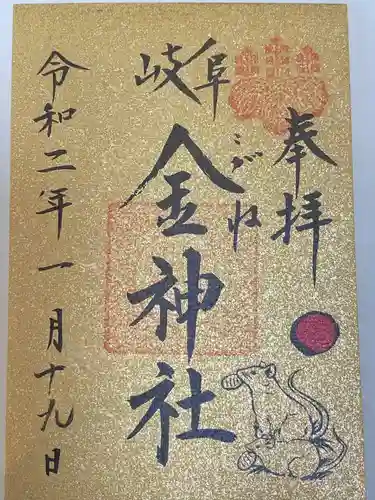 奉拝
岐阜
こがね
金神社
令和二年一月十九日